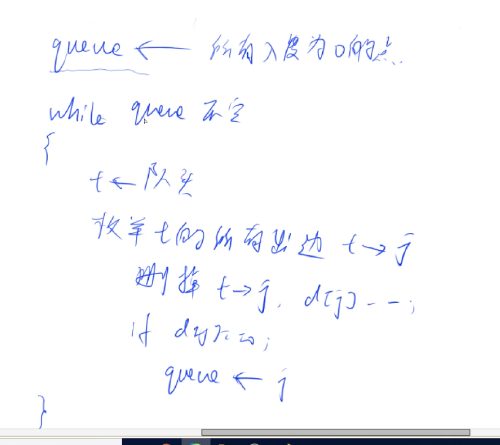 queue ← 所有入度为0的点
while queue 不空
{
t ← 队头
枚举 t 的所有出边 t → j
删掉 t → j, d[j]--;
if d[j]==0;
queue ← j
}